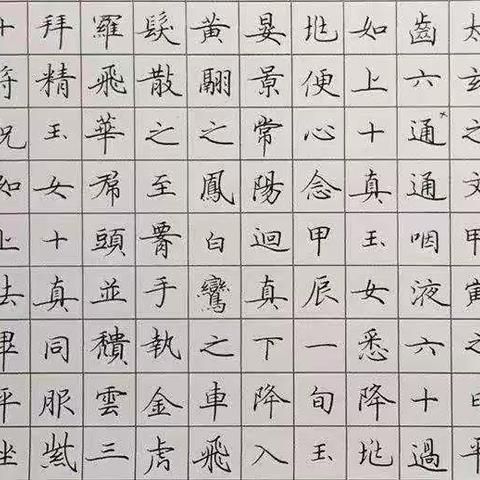 太玄之文甲寅之日平
齒六通通咽液六十過
如上十真玉女悉降地
地便心念甲辰一旬玉
晏景常陽迴真下降入
黃翮之鳳白鸞之車飛
髮散之至腰手執金虎
羅飛華帬頭並頹雲三
拜精玉女十真同服紫
十符呪如上法畢平坐